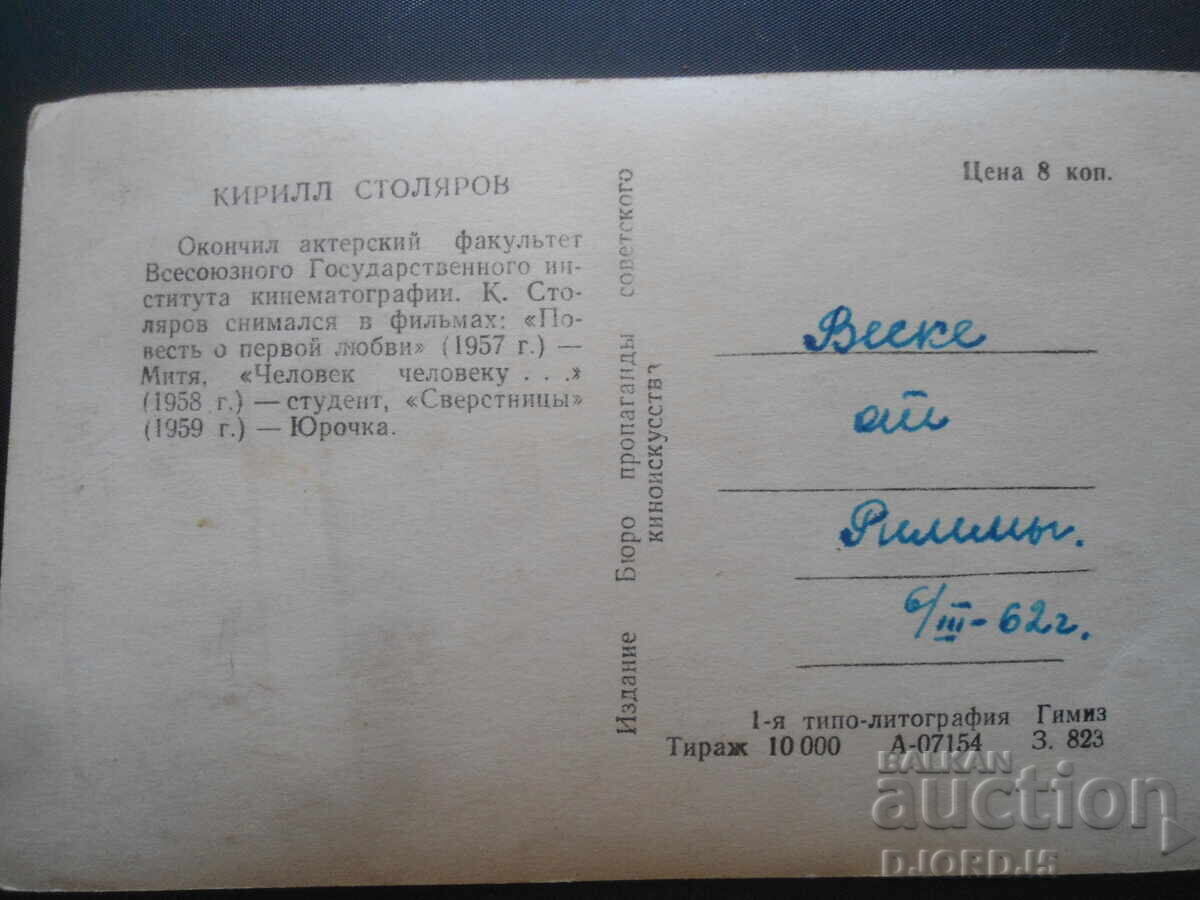 КИРИЛЛ СТОЛЯРОВ
Окончил актерский факультет
Всесоюзного Государственного ин-
ститута кинематографии. К. Сто-
ляров снимался в фильмах: «По-
весть о первой любви» (1957 г.) —
Митя, «Человек человеку . . .»
(1958 г.) — студент, «Сверстницы»
(1959 г.) — Юрочка.
Издание Бюро пропаганды советского
киноискусства
Цена 8 коп.
Веске
от
Риммы.
6/III-62г.
1-я типо-литография Гимиз
Тираж 10 000 А-07154 З. 823
BALKAN
auction
DJORD.15